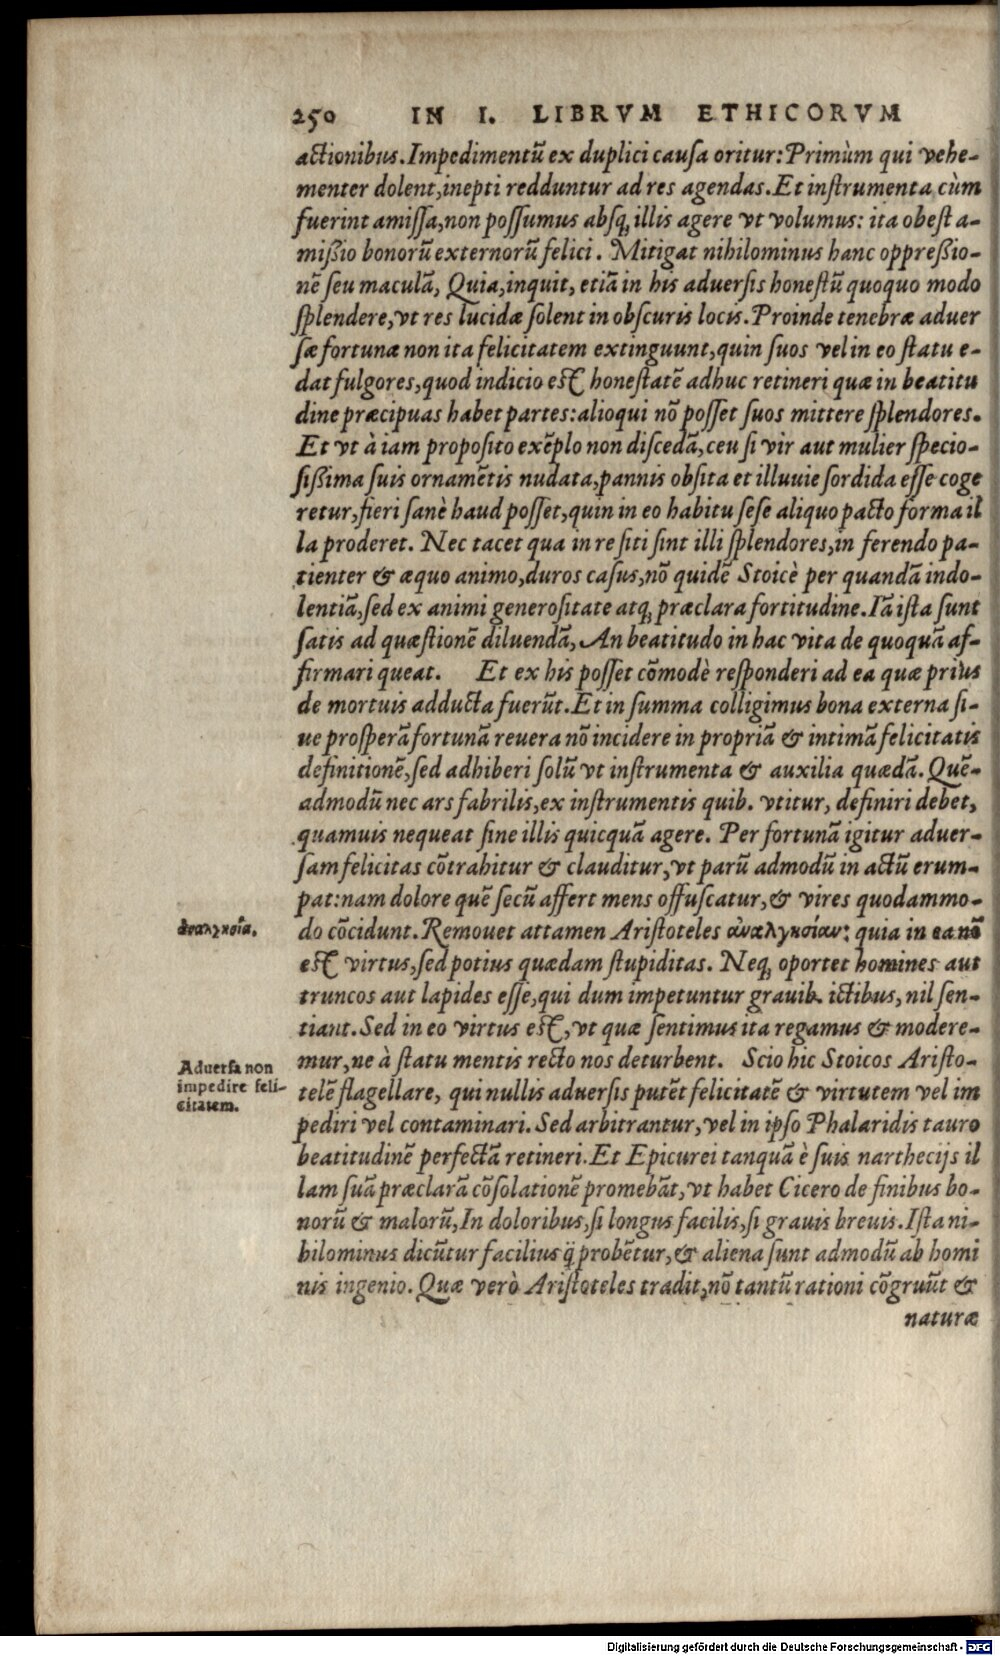 250 IN I. LIBRVM ETHICORVM
actionibus. Impedimentū ex duplici causa oritur: Primùm qui vehe-
menter dolent, inepti redduntur ad res agendas. Et instrumenta cùm
fuerint amissa, non possumus absq; illis agere vt volumus: ita obest a-
mißio bonorū externorū felici. Mitigat nihilominus hanc oppreßio-
nē seu maculā, Quia, inquit, etiā in his aduersis honestū quoquo modo
splendere, vt res lucidæ solent in obscuris locis. Proinde tenebræ aduer
sæ fortunæ non ita felicitatem extinguunt, quin suos vel in eo statu e-
dat fulgores, quod indicio est honestatē adhuc retineri quæ in beatitu
dine præcipuas habet partes: alioqui nō posset suos mittere splendores.
Et vt à iam proposito exēplo non discedā, ceu si vir aut mulier specio-
sißima suis ornamētis nudata, pannis obsita et illuuie sordida esse coge
retur, fieri sanè haud posset, quin in eo habitu sese aliquo pacto forma il
la proderet. Nec tacet qua in re siti sint illi splendores, in ferendo pa-
tienter & æquo animo, duros casus, nō quidē Stoicè per quandā indo-
lentiā, sed ex animi generositate atq; præclara fortitudine. Iā ista sunt
satis ad quæstionē diluendā, An beatitudo in hac vita de quoquā af-
firmari queat. Et ex his posset cōmodè responderi ad ea quæ prius
de mortuis adducta fuerūt. Et in summa colligimus bona externa si-
ue prosperā fortunā reuera nō incidere in propriā & intimā felicitatis
definitionē, sed adhiberi solū vt instrumenta & auxilia quædā. Quē-
admodū nec ars fabrilis, ex instrumentis quib. vtitur, definiri debet,
quamuis nequeat sine illis quicquā agere. Per fortunā igitur aduer-
sam felicitas cōtrahitur & clauditur, vt parū admodū in actū erum-
pat: nam dolore quē secū affert mens offuscatur, & vires quodammo-
ἀναλγησία.
do cōcidunt. Remouet attamen Aristoteles ἀναλγησίαν: quia in ea nō
est virtus, sed potius quædam stupiditas. Neq; oportet homines aut
truncos aut lapides esse, qui dum impetuntur grauib. ictibus, nil sen-
tiant. Sed in eo virtus est, vt quæ sentimus ita regamus & modere-
Aduersa non
impedire feli-
citatem.
mur, ne à statu mentis recto nos deturbent. Scio hic Stoicos Aristo-
telē flagellare, qui nullis aduersis putēt felicitatē & virtutem vel im
pediri vel contaminari. Sed arbitrantur, vel in ipso Phalaridis tauro
beatitudinē perfectā retineri. Et Epicurei tanquā è suis narthecijs il
lam suā præclarā cōsolationē promebāt, vt habet Cicero de finibus bo-
norū & malorū, In doloribus, si longus facilis, si grauis breuis. Ista ni-
hilominus dicūtur facilius q̄ probētur, & aliena sunt admodū ab homi
nis ingenio. Quæ verò Aristoteles tradit, nō tantū rationi cōgruūt &
naturæ
Digitalisierung gefördert durch die Deutsche Forschungsgemeinschaft - DFG